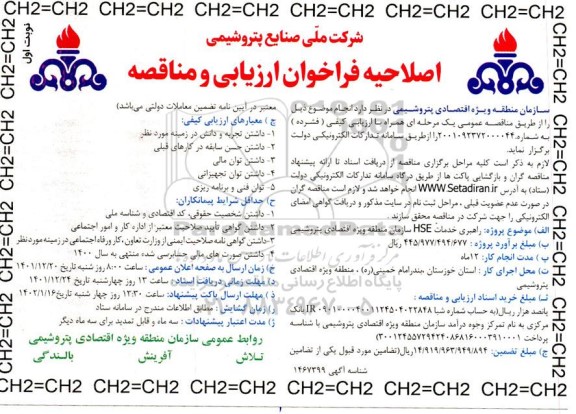 CH2=CH2 CH2=CH2 CH2=CH2 CH2=CH2 CH2=CH2 CH2=CH2 CH2=CH2
نوبت اول
شرکت ملّی صنایع پتروشیمی
اصلاحیه فراخوان ارزیابی و مناقصه
سازمان منطقه ویژه اقتصادی پتروشیمی در نظر دارد انجام موضوع ذیل
را از طریق مناقصه عمومی یک مرحله ای همراه با ارزیابی کیفی ( فشرده )
به شماره ۲۰۰۱۰۹۲۳۷۲۰۰۰۰۴۴ را از طریق سامانه تدارکات الکترونیکی دولت
برگزار نماید.
لازم به ذکر است کلیه مراحل برگزاری مناقصه از دریافت اسناد تا ارائه پیشنهاد
مناقصه گران و بازگشایی پاکت ها از طریق درگاه سامانه تدارکات الکترونیکی دولت
(ستاد) به آدرس WWW.Setadiran.ir انجام خواهد شد و لازم است مناقصه گران
در صورت عدم عضویت قبلی ، مراحل ثبت نام در سایت مذکور و دریافت گواهی امضای
الکترونیکی را جهت شرکت در مناقصه محقق سازند.
الف) موضوع پروژه: راهبری خدمات HSE سازمان منطقه ویژه اقتصادی پتروشیمی
ب) مبلغ برآورد پروژه : ۴۴۵/۹۷۷/۴۹۴/۶۷۷ ریال
پ) مدت انجام کار: ۱۲ماه
ت) محل اجرای کار : استان خوزستان بندرامام خمینی(ره) ، منطقه ویژه اقتصادی
پتروشیمی
ث) مبلغ خرید اسناد ارزیابی و مناقصه :
پانصد هزار ریال(به حساب شماره شبا
مرکزی به نام تمرکز وجوه درآمد سازمان منطقه ویژه اقتصادی پتروشیمی با شناسه
پرداخت
ج) مبلغ تضمین: ۱۴/۹۱۹/۹۶۳/۹۴۹/۸۹۴ ریال(تضامین مورد قبول یکی از تضامین
شناسه آگهی ۱۴۶۷۳۹۹
معتبر در آیین نامه تضمین معاملات دولتی می‌باشد)
چ ) معیارهای ارزیابی کیفی:
۱- داشتن تجربه و دانش در زمینه مورد نظر
۲- داشتن حسن سابقه در کارهای قبلی
۳- داشتن توان مالی
۴- داشتن توان تجهیزاتی
۵- توان فنی و برنامه ریزی
ح) حداقل شرایط پیمانکاران:
۱- داشتن شخصیت حقوقی، کد اقتصادی و شناسه ملی
۲- داشتن گواهی تأیید صلاحیت معتبر از اداره کار و امور اجتماعی
۳- داشتن گواهی نامه صلاحیت ایمنی از وزارت تعاون ،کار و رفاه اجتماعی در زمینه مورد نظر
۴- داشتن صورت های مالی حسابرسی شده منتهی به سال ۱۴۰۰
خ) زمان ارسال به صفحه اعلان عمومی : ساعت ۸:۰۰ روز شنبه تاریخ ۱۴۰۱/۱۲/۲۰
د) مهلت زمانی دریافت اسناد: ساعت ۱۳ روز چهارشنبه تاریخ ۱۴۰۱/۱۲/۲۴
ذ ) مهلت ارسال پاکت پیشنهاد: ساعت ۱۳:۰۰ روز چهار شنبه تاریخ ۱۴۰۲/۱/۱۶
ر) زمان گشایش : مطابق اطلاعات مندرج در سامانه ستاد
ژ) مدت اعتبار پیشنهادات : سه ماه و قابل تمدید برای سه ماه دیگر
روابط عمومی سازمان منطقه ویژه اقتصادی پتروشیمی
تلاش آفرینش بالندگی
CH2=CH2 CH2=CH2 CH2=CH2 CH2=CH2 CH2=CH2 CH2=CH2 CH2=CH2